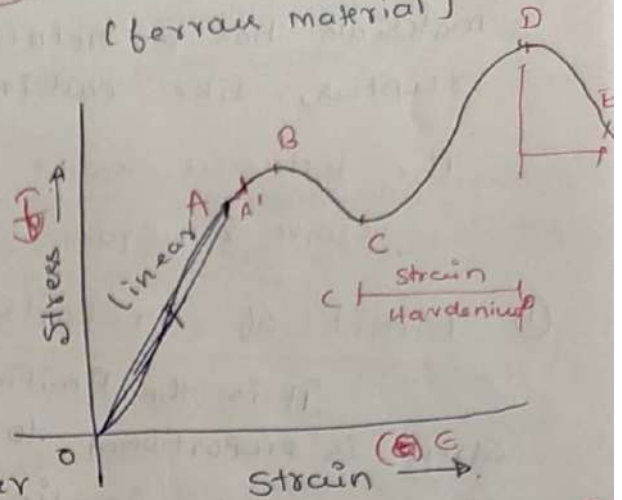 (ferrous material)
D
E
B
A
A'
C
linear
Stress
strain
C
Hardening
D
O
Strain
ϵ
er